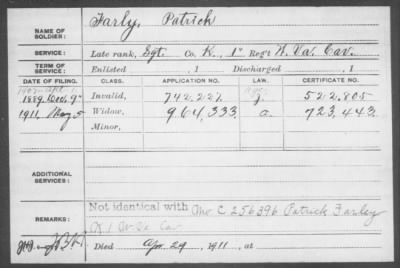 NAME OF SOLDIER: Farly, Patrick
SERVICE: Late rank, Sgt. Co. K, 1" Reg't W. Va. Cav.
TERM OF SERVICE: Enlisted , 1 Discharged , 1
DATE OF FILING. CLASS. APPLICATION NO. LAW. CERTIFICATE NO.
1889. Dec. 9" Invalid, 742.227. J. 522.805
1911. May 5 Widow, 964,333. a. 723,443.
Minor,
ADDITIONAL SERVICES:
REMARKS: Not identical with C 256396 Patrick Farley
K 1 W Va Cav
Died Apr. 29, 1911, at